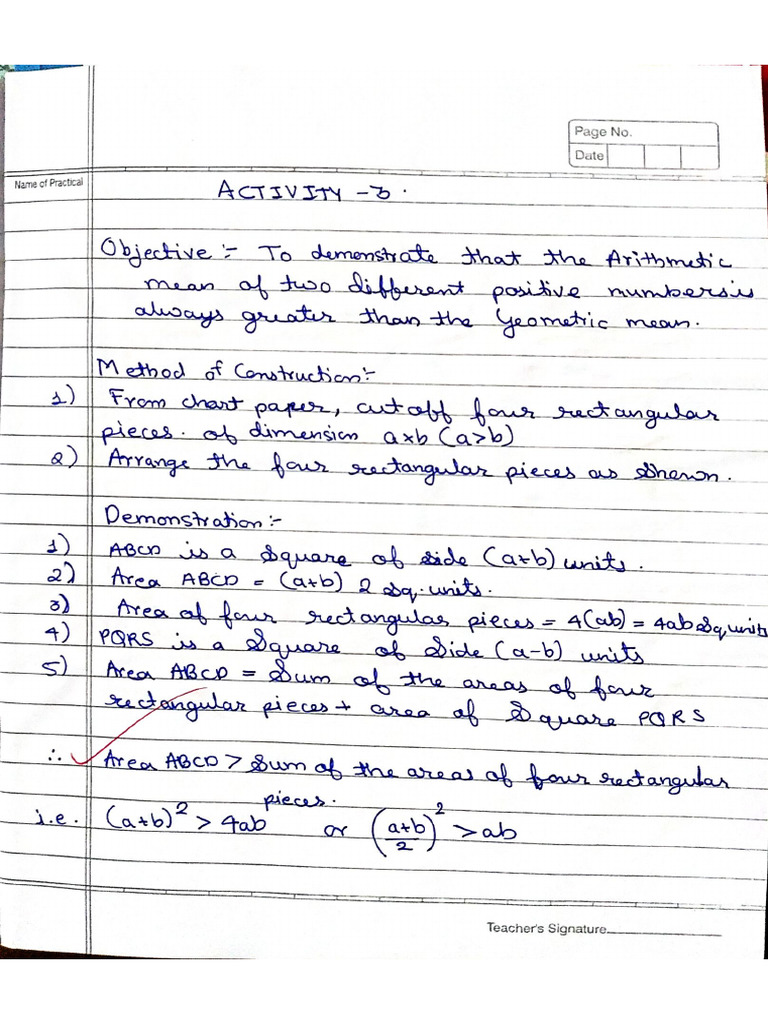 Page No.
Date
Name of Practical
ACTIVITY - 3.
Objective :- To demonstrate that the Arithmetic
mean of two different positive numbers is
always greater than the Geometric mean.
Method of Construction:-
1) From chart paper, cut off four rectangular
pieces. of dimension a×b (a>b)
2) Arrange the four rectangular pieces as shown.
Demonstration:-
1) ABCD is a Square of side (a+b) units.
2) Area ABCD = (a+b) 2 sq. units.
3) Area of four rectangular pieces = 4(ab) = 4ab Sq, units
4) PQRS is a Square of Side (a-b) units
5) Area ABCD = Sum of the areas of four
rectangular pieces + area of Square PQRS
∴ Area ABCD > Sum of the areas of four rectangular
pieces.
i.e. (a+b)² > 4ab or ((a+b)/2)² > ab
Teacher's Signature